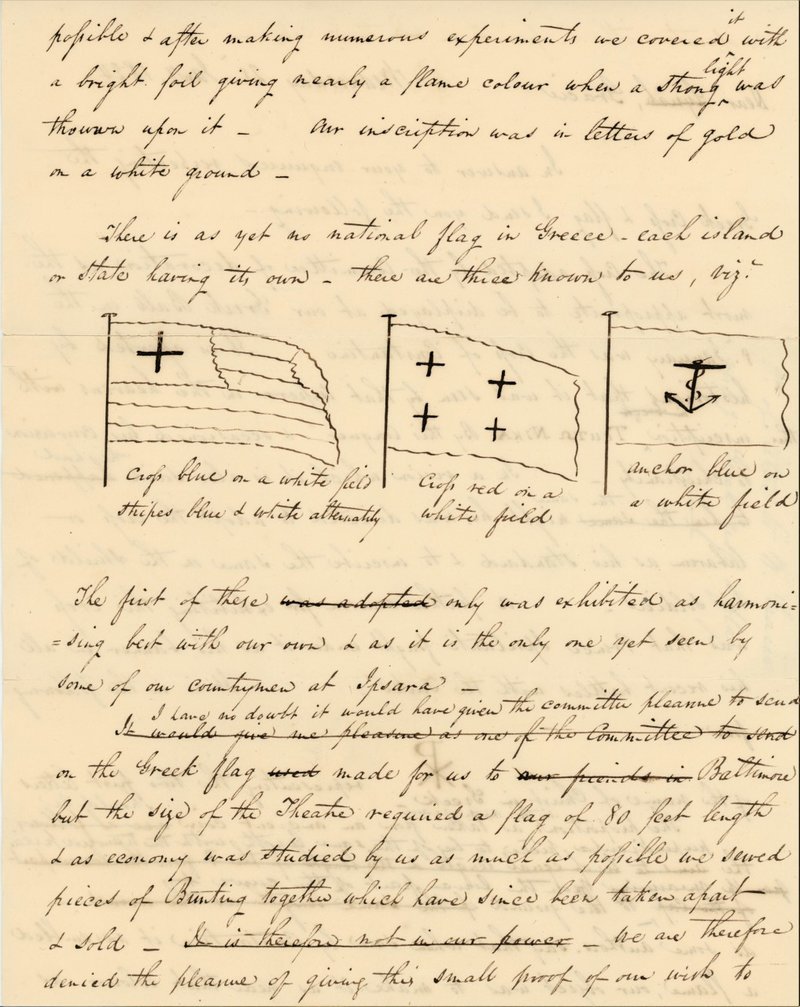 it
possible & after making numerous experiments we covered with
light
a bright foil giving nearly a flame colour when a strong was
thrown upon it – Our inscription was in letters of gold
on a white ground –
There is as yet no national flag in Greece – each island
or State having its own – there are three known to us, viz.r
cross blue on a white field
stripes blue & white alternately
cross red on a
white field
anchor blue on
a white field
The first of these was adopted only was exhibited as harmoni=
=sing best with our own & as it is the only one yet seen by
some of our countrymen at Ipsara –
I have no doubt it would have given the committee pleasure to send
It would give me pleasure as one of the Committee to send
on the Greek flag used made for us to our friends in Baltimore
but the size of the Theatre required a flag of 80 feet length
& as economy was studied by us as much as possible we sewed
pieces of Bunting together which have since been taken apart
& sold – It is therefore not in our power – We are therefore
denied the pleasure of giving this small proof of our wish to